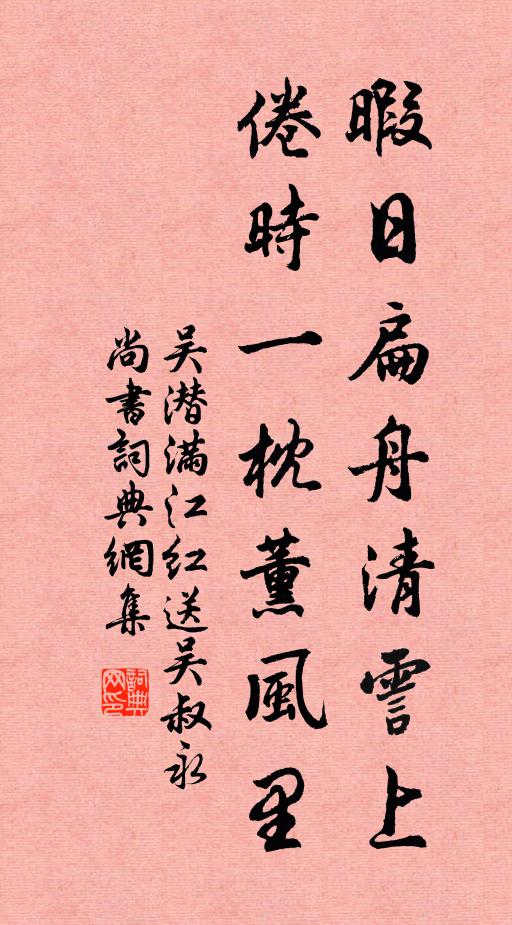 暇日扁舟清霅上
倦時一枕薰風里
吴潜滿江红送吴叔永
尚書詞典網集
詞典网印